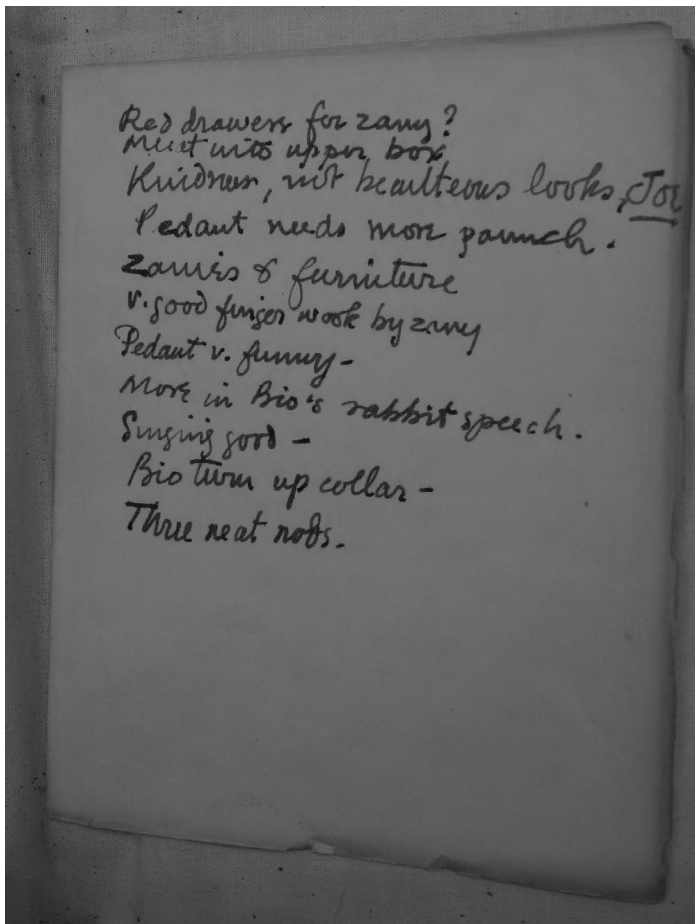 Red drawers for zany?
Meat into upper box
Kindness, not beauteous looks, Joe
Pedant needs more paunch.
Zanies & furniture
v. good finger work by zany
Pedant v. funny -
More in Bio's rabbit speech.
Singing good -
Bio turn up collar -
Three neat nobs.